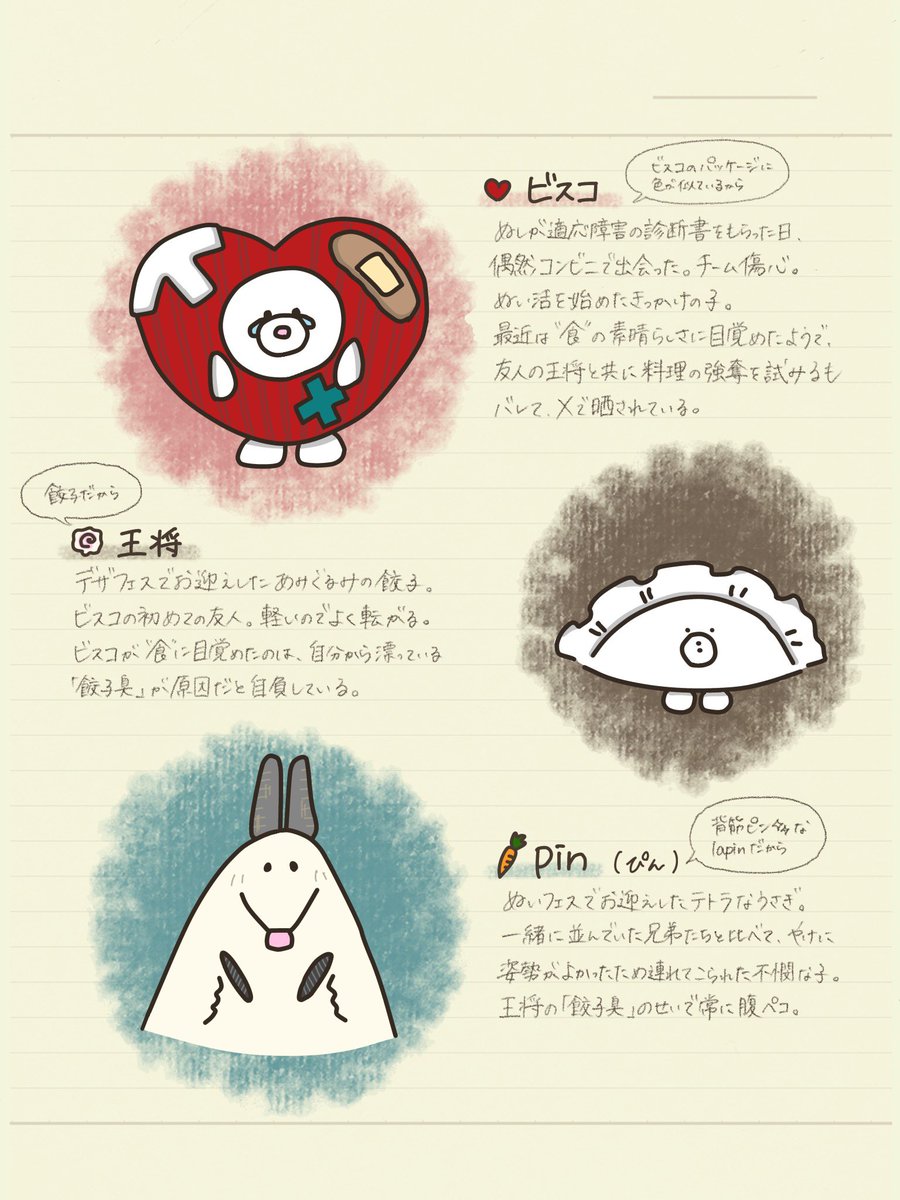 ビスコ
ビスコのパッケージに
色が似ているから
ぬしが適応障害の診断書をもらった日、
偶然コンビニで出会った。チーム傷心。
ぬい活を始めたきっかけの子。
最近は“食”の素晴らしさに目覚めたようで、
友人の王将と共に料理の強奪を試みるも
バレて、Xで晒されている。
餃子だから
王将
デザフェスでお迎えしたあみぐるみの餃子。
ビスコの初めての友人。軽いのでよく転がる。
ビスコが“食”に目覚めたのは、自分から漂っている
「餃子臭」が原因だと自負している。
背筋ピンみたいな
lapinだから
pin (ぴん)
ぬいフェスでお迎えしたテトラなうさぎ。
一緒に並んでいた兄弟たちと比べて、やけに
姿勢がよかったため連れてこられた不憫な子。
王将の「餃子臭」のせいで常に腹ペコ。